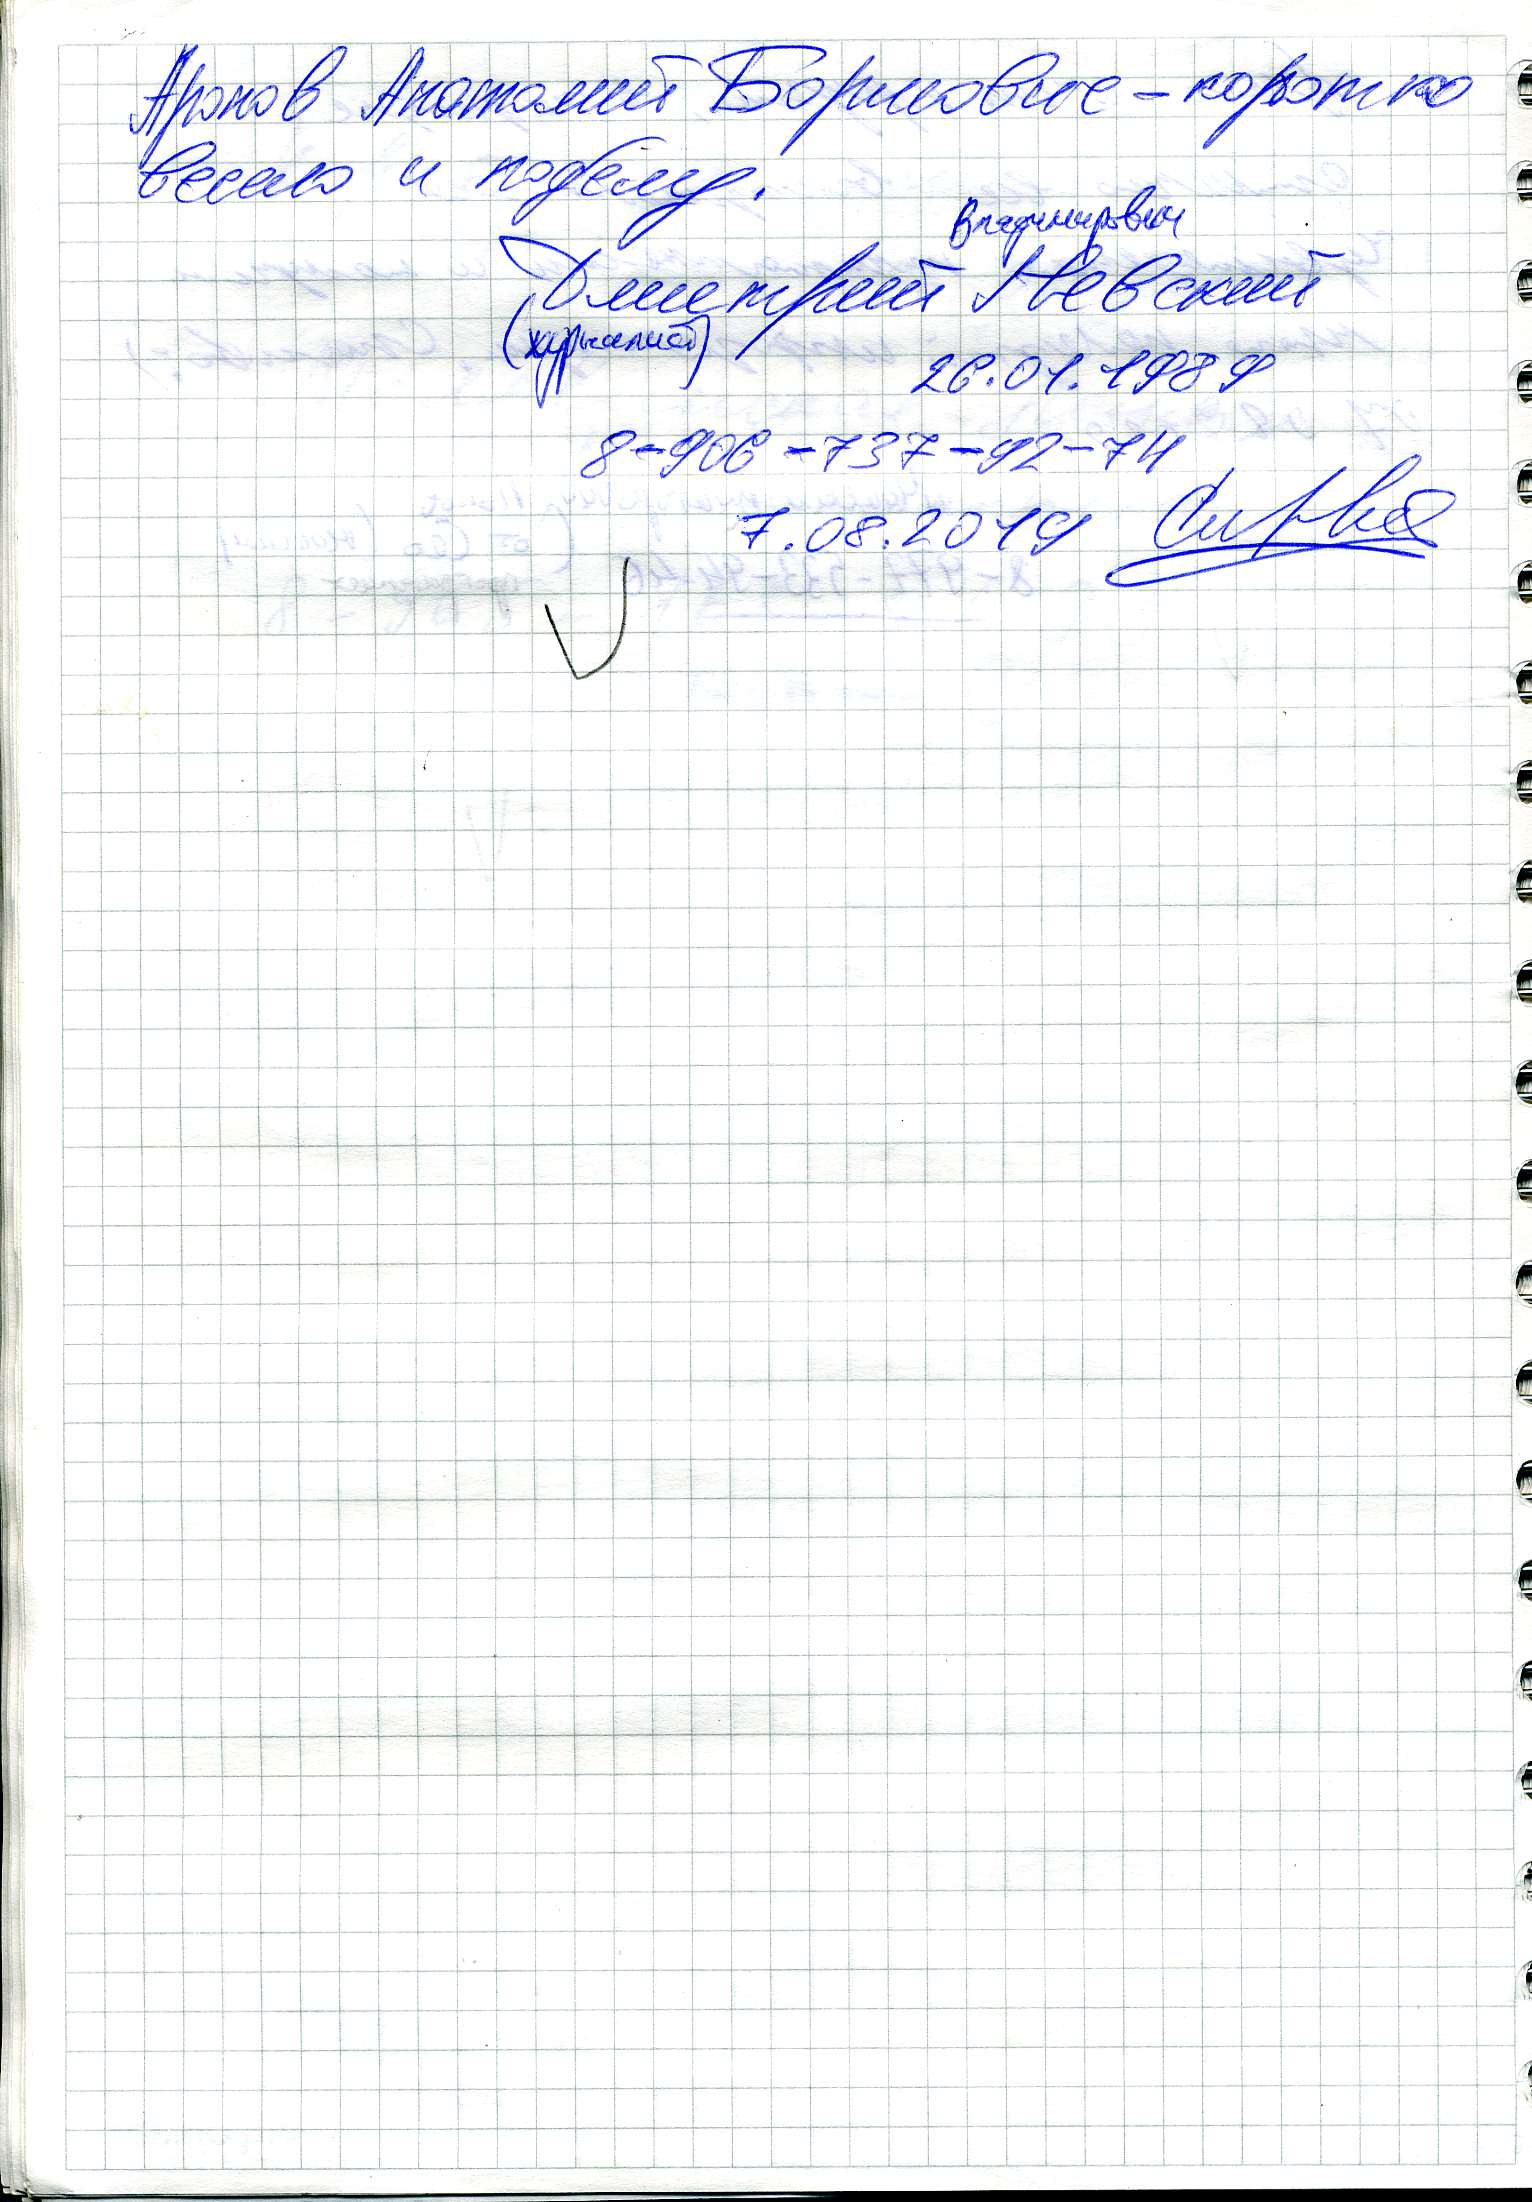 Аронов Анатолий Борисович - коротко
весело и по делу.
Владимирович
Дмитрий Невский
(журналист)
26.01.1989
8-906-737-92-74
7.08.2019